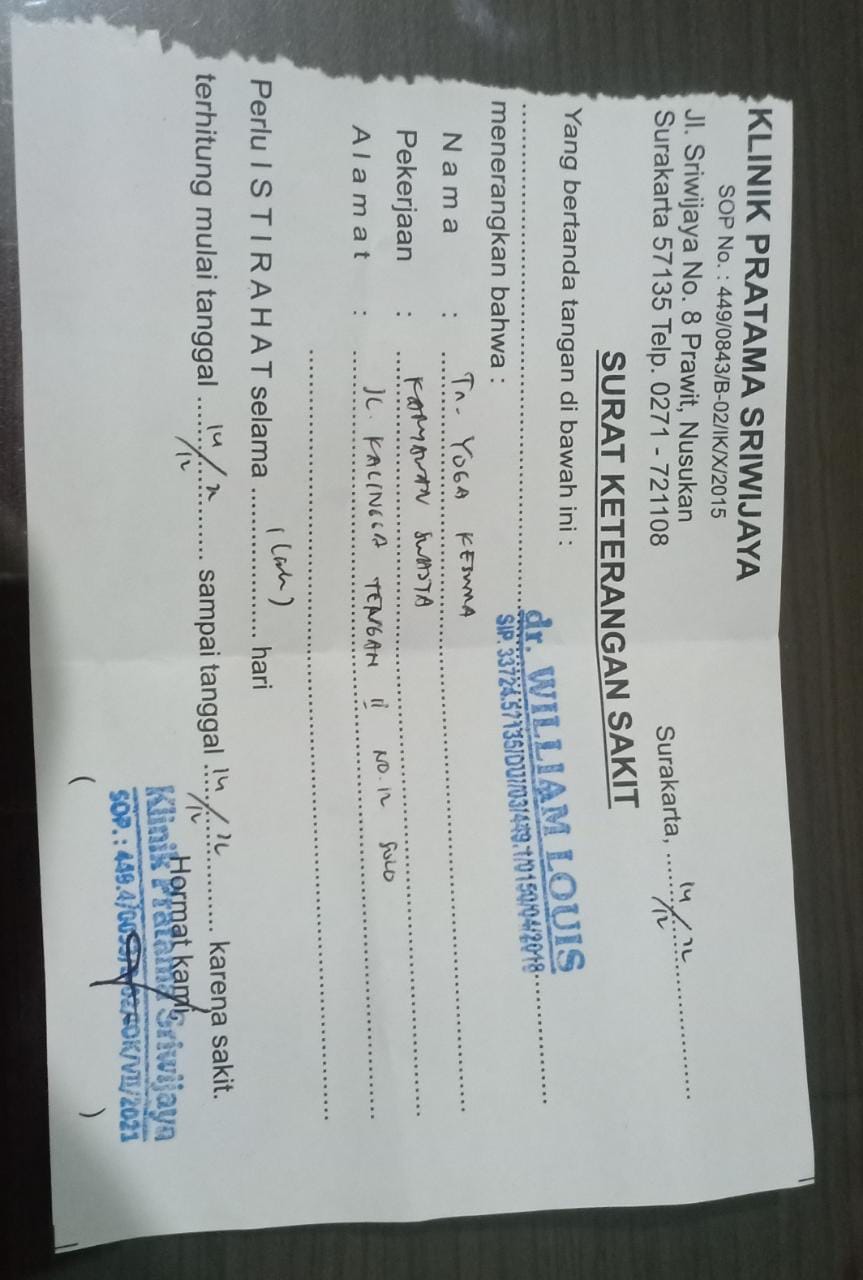 KLINIK PRATAMA SRIWIJAYA
SOP No. : 449/0843/B-02/IK/X/2015
Jl. Sriwijaya No. 8 Prawit, Nusukan
Surakarta 57135 Telp. 0271 - 721108
Surakarta, 14/12
SURAT KETERANGAN SAKIT
Yang bertanda tangan di bawah ini :
dr. WILLIAM LOUIS
SIP. 33724.57135/DU/03/449.1/0150/04/2018
menerangkan bahwa :
Nama : Tn. YOGA KESUMA
Pekerjaan : KARYAWAN SWASTA
Alamat : JL. KALINGGA TENGAH II NO. 12 SOLO
Perlu ISTIRAHAT selama 1 hari
terhitung mulai tanggal 14/12 sampai tanggal 14/12 karena sakit.
Hormat kami,
Klinik Pratama Sriwijaya
SOP. : /VII/2021
( )